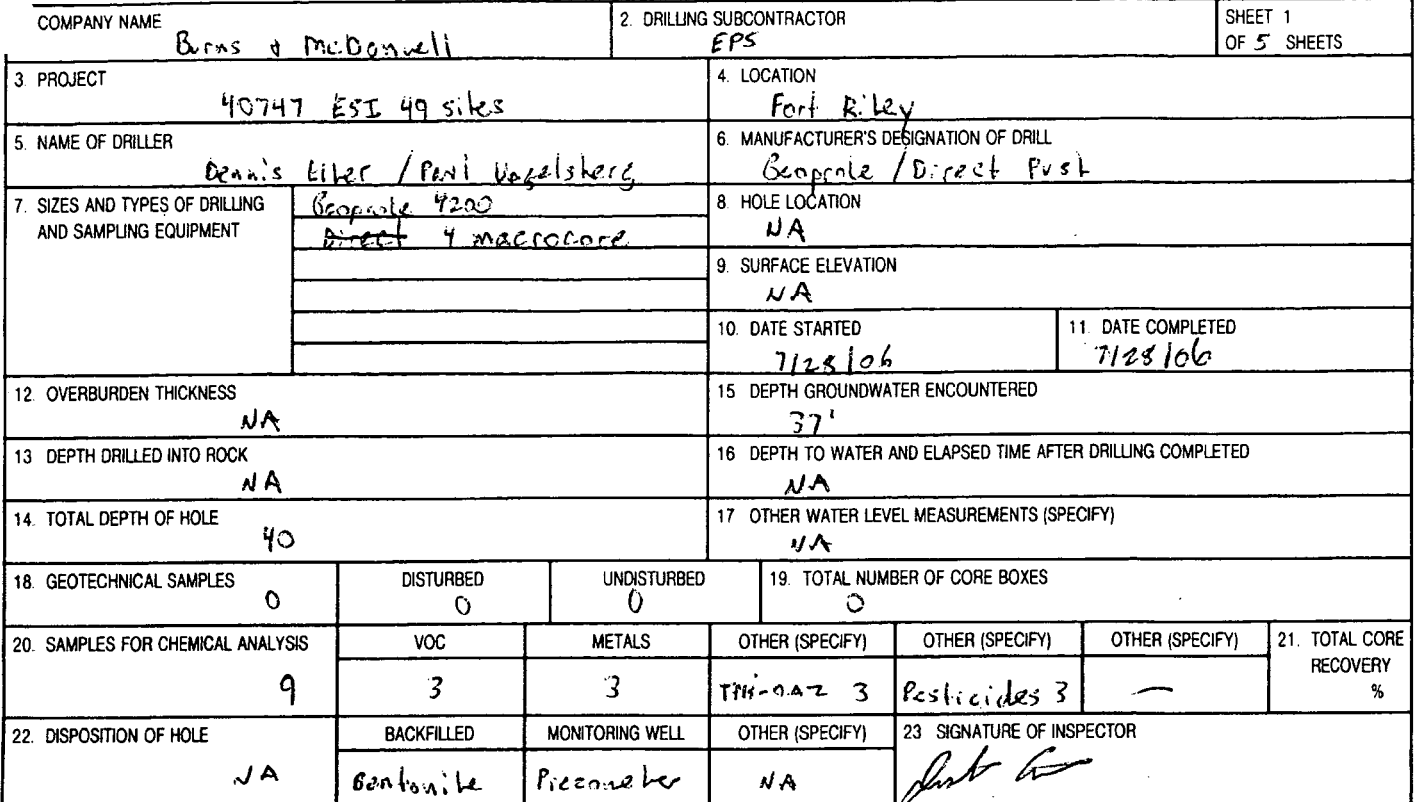 COMPANY NAME
Burns & McDonnell
2. DRILLING SUBCONTRACTOR
EPS
SHEET 1
OF 5 SHEETS
3. PROJECT
40747 ESI 49 sites
4. LOCATION
Fort Riley
5. NAME OF DRILLER
Dennis / Paul Vogelsberg
6. MANUFACTURER'S DESIGNATION OF DRILL
Geoprobe / Direct Push
7. SIZES AND TYPES OF DRILLING
AND SAMPLING EQUIPMENT
Geoprobe 4200
Direct 4 macrocore
8. HOLE LOCATION
NA
9. SURFACE ELEVATION
NA
10. DATE STARTED
7/28/06
11. DATE COMPLETED
7/28/06
12. OVERBURDEN THICKNESS
NA
15 DEPTH GROUNDWATER ENCOUNTERED
37'
13 DEPTH DRILLED INTO ROCK
NA
16 DEPTH TO WATER AND ELAPSED TIME AFTER DRILLING COMPLETED
NA
14. TOTAL DEPTH OF HOLE
40
17 OTHER WATER LEVEL MEASUREMENTS (SPECIFY)
NA
18. GEOTECHNICAL SAMPLES
0
DISTURBED
0
UNDISTURBED
0
19. TOTAL NUMBER OF CORE BOXES
0
20. SAMPLES FOR CHEMICAL ANALYSIS
9
VOC
3
METALS
3
OTHER (SPECIFY)
3
OTHER (SPECIFY)
Pesticides 3
OTHER (SPECIFY)
—
21. TOTAL CORE
RECOVERY
%
22. DISPOSITION OF HOLE
NA
BACKFILLED
Bentonite
MONITORING WELL
Piezometer
OTHER (SPECIFY)
NA
23 SIGNATURE OF INSPECTOR